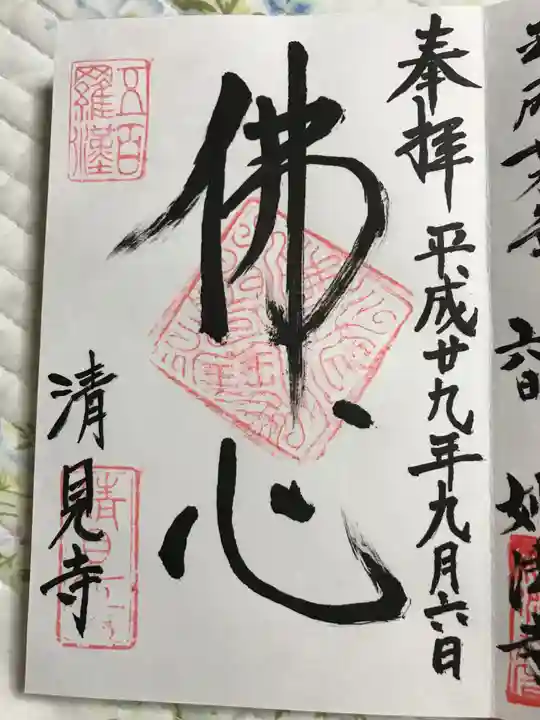 奉拝 平成廿九年九月六日
佛心
五百
羅漢
清見寺
六日 妙法寺